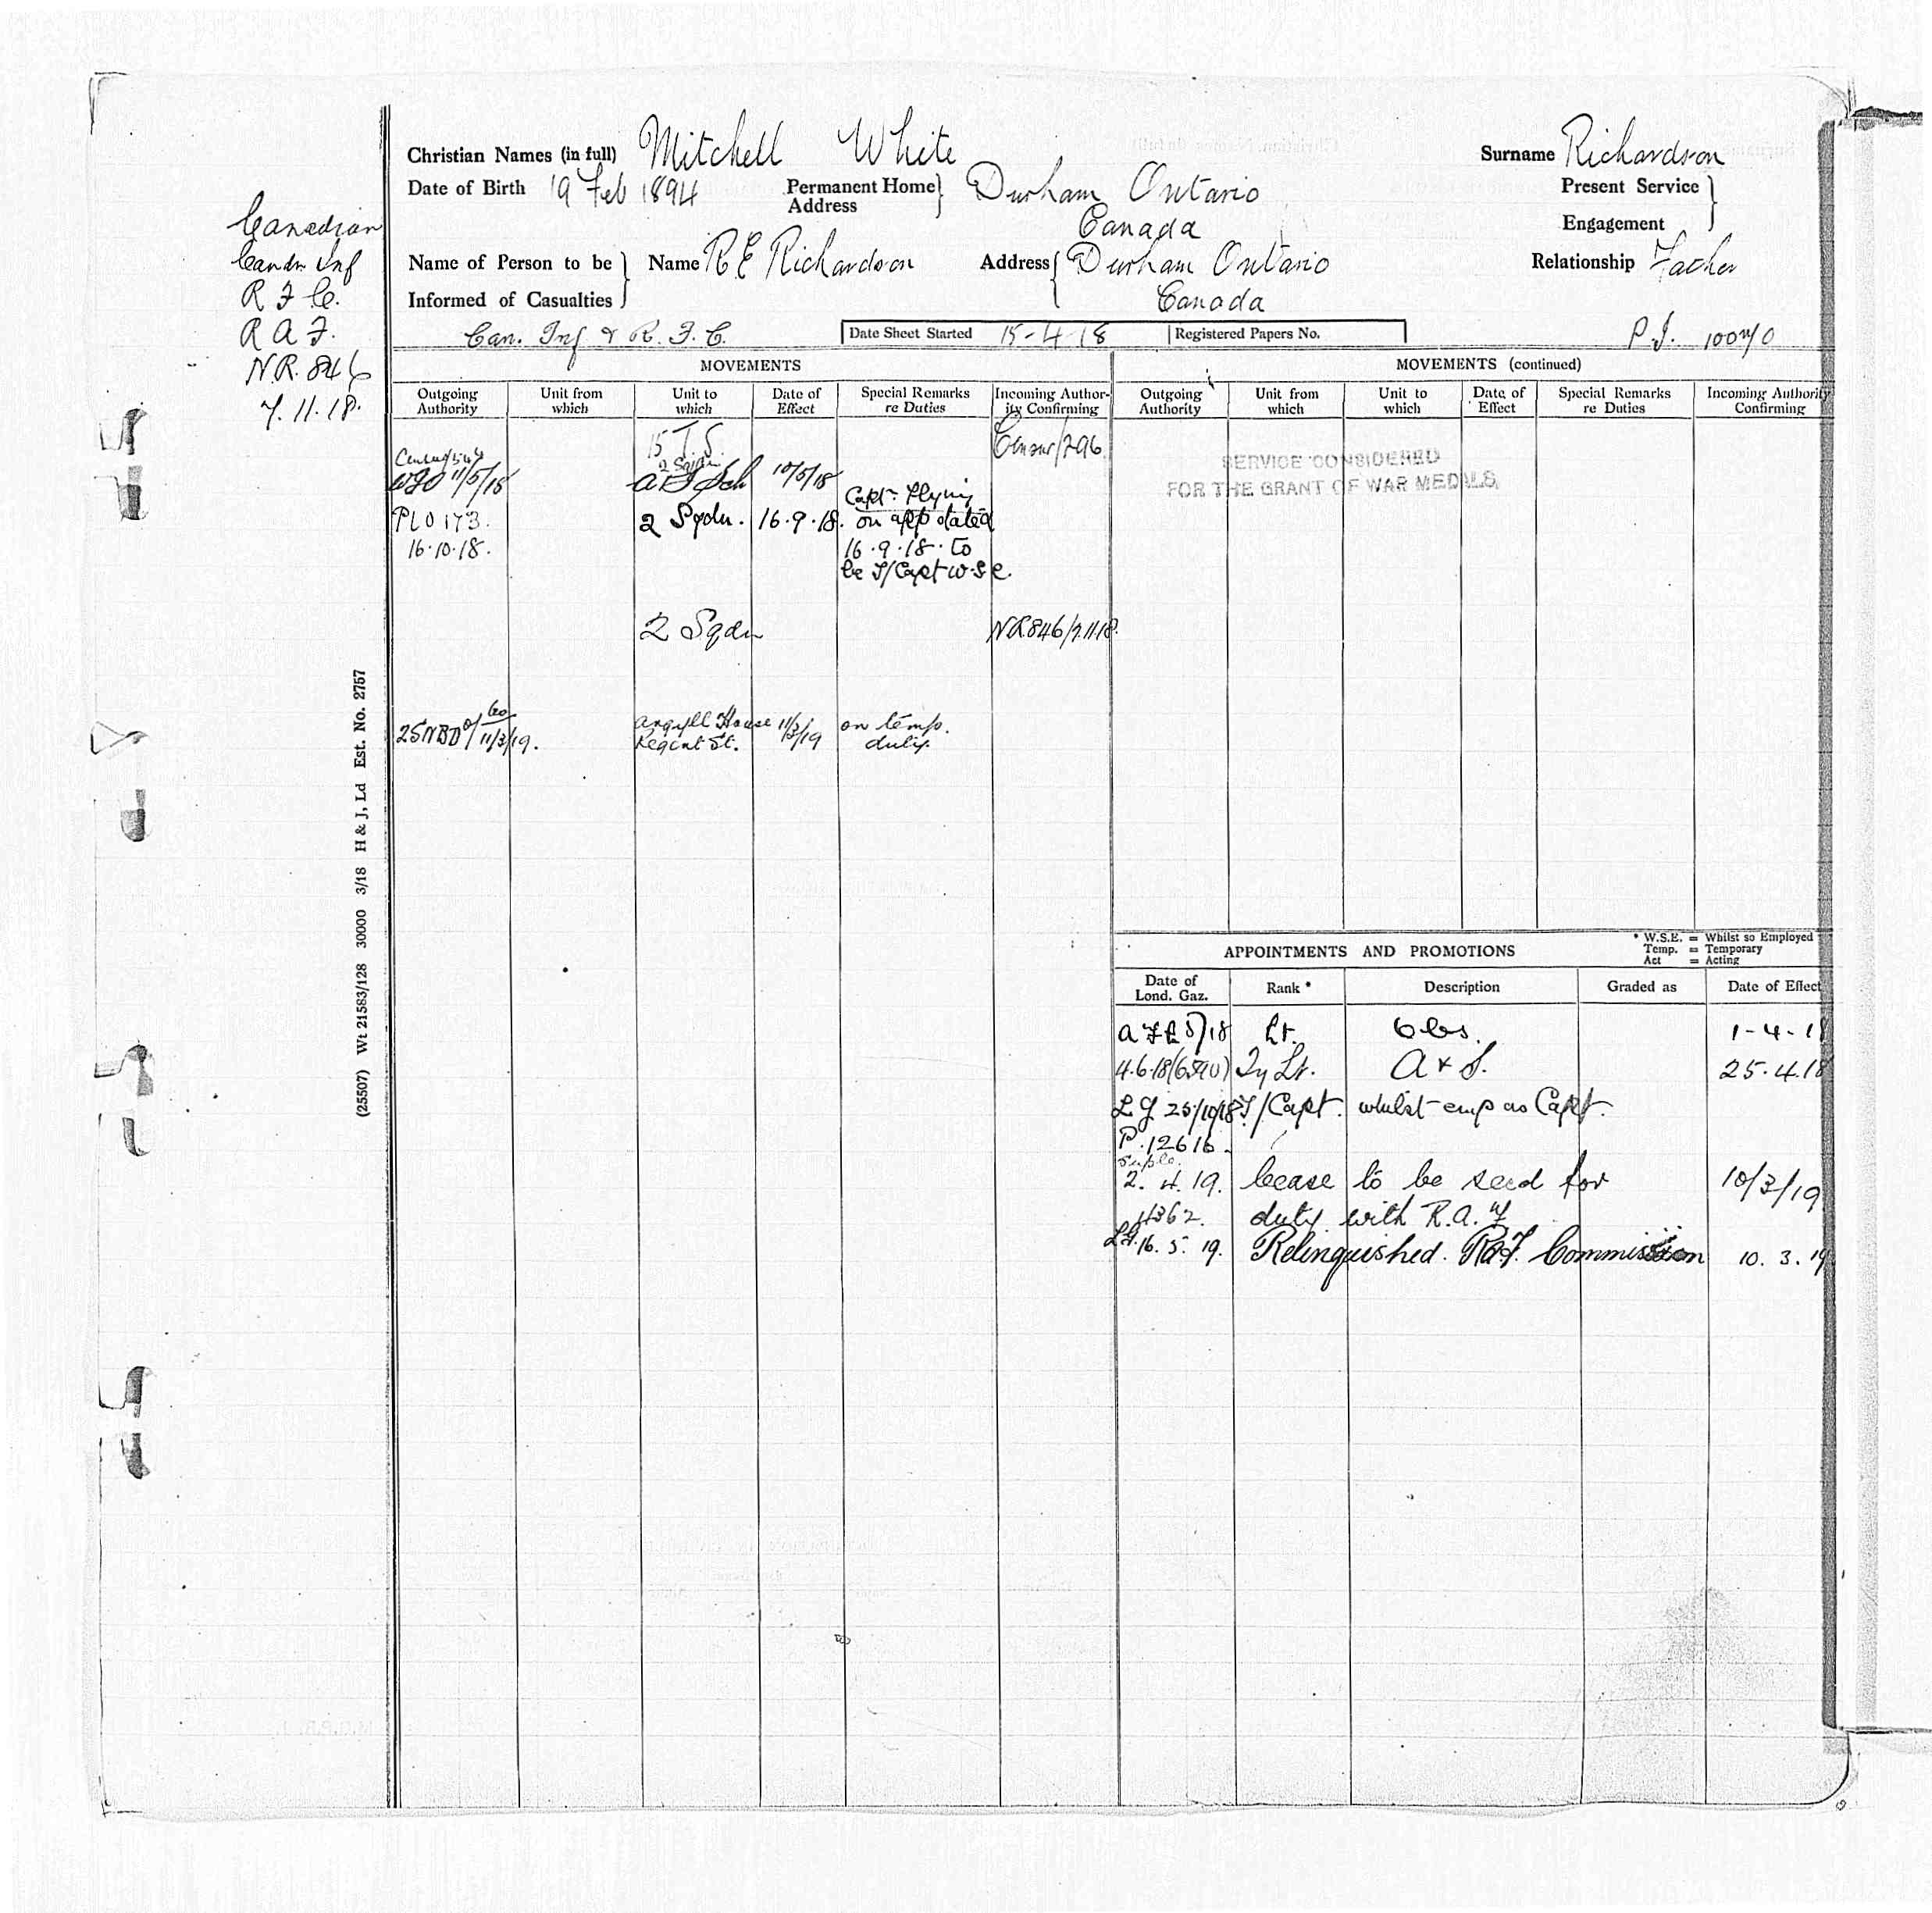 Christian Names (in full) Mitchell White Surname Richardson
Date of Birth 19 Feb 1894 Permanent Home Address Durham Ontario Canada Present Service Engagement
Name of Person to be Informed of Casualties Name R E Richardson Address Durham Ontario Canada Relationship Father
Can. Inf & R. F. C. Date Sheet Started 15-4-18 Registered Papers No. P.I.
Canadian
Inf
R F C.
R A F.
N.R. 846
7.11.18.
MOVEMENTS
Outgoing Authority Unit from which Unit to which Date of Effect Special Remarks re Duties Incoming Authority Confirming
15 T S /296
2 Sqdn
11/5/18 10/5/18
PLO 173. 2 Sqdn. 16.9.18. Capt. Flying
16.10.18. on app dated
16.9.18. to
be T/Capt w.s.e.
2 Sqdn NR846/7.11.18.
11/3/19. Argyll House 11/3/19 on temp.
Regent St. duty.
MOVEMENTS (continued)
Outgoing Authority Unit from which Unit to which Date of Effect Special Remarks re Duties Incoming Authority Confirming
SERVICE CONSIDERED
FOR THE GRANT OF WAR MEDALS.
APPOINTMENTS AND PROMOTIONS
* W.S.E. = Whilst so Employed
Temp. = Temporary
Act = Acting
Date of Lond. Gaz. Rank * Description Graded as Date of Effect
Lt. Obs. 1-4-18
4.6.18 Ty Lt. A & S. 25.4.18
L G 25/10/18 T/Capt. whilst emp as Capt.
P. 12616.
2. 4. 19. Cease to be secd for 10/3/19
4362. duty with R.A.F
L.G. 16. 5. 19. Relinquished. RAF. Commission 10. 3. 19
(25507) Wt 21583/128 30000 3/18 H & J, Ld Est. No. 2757